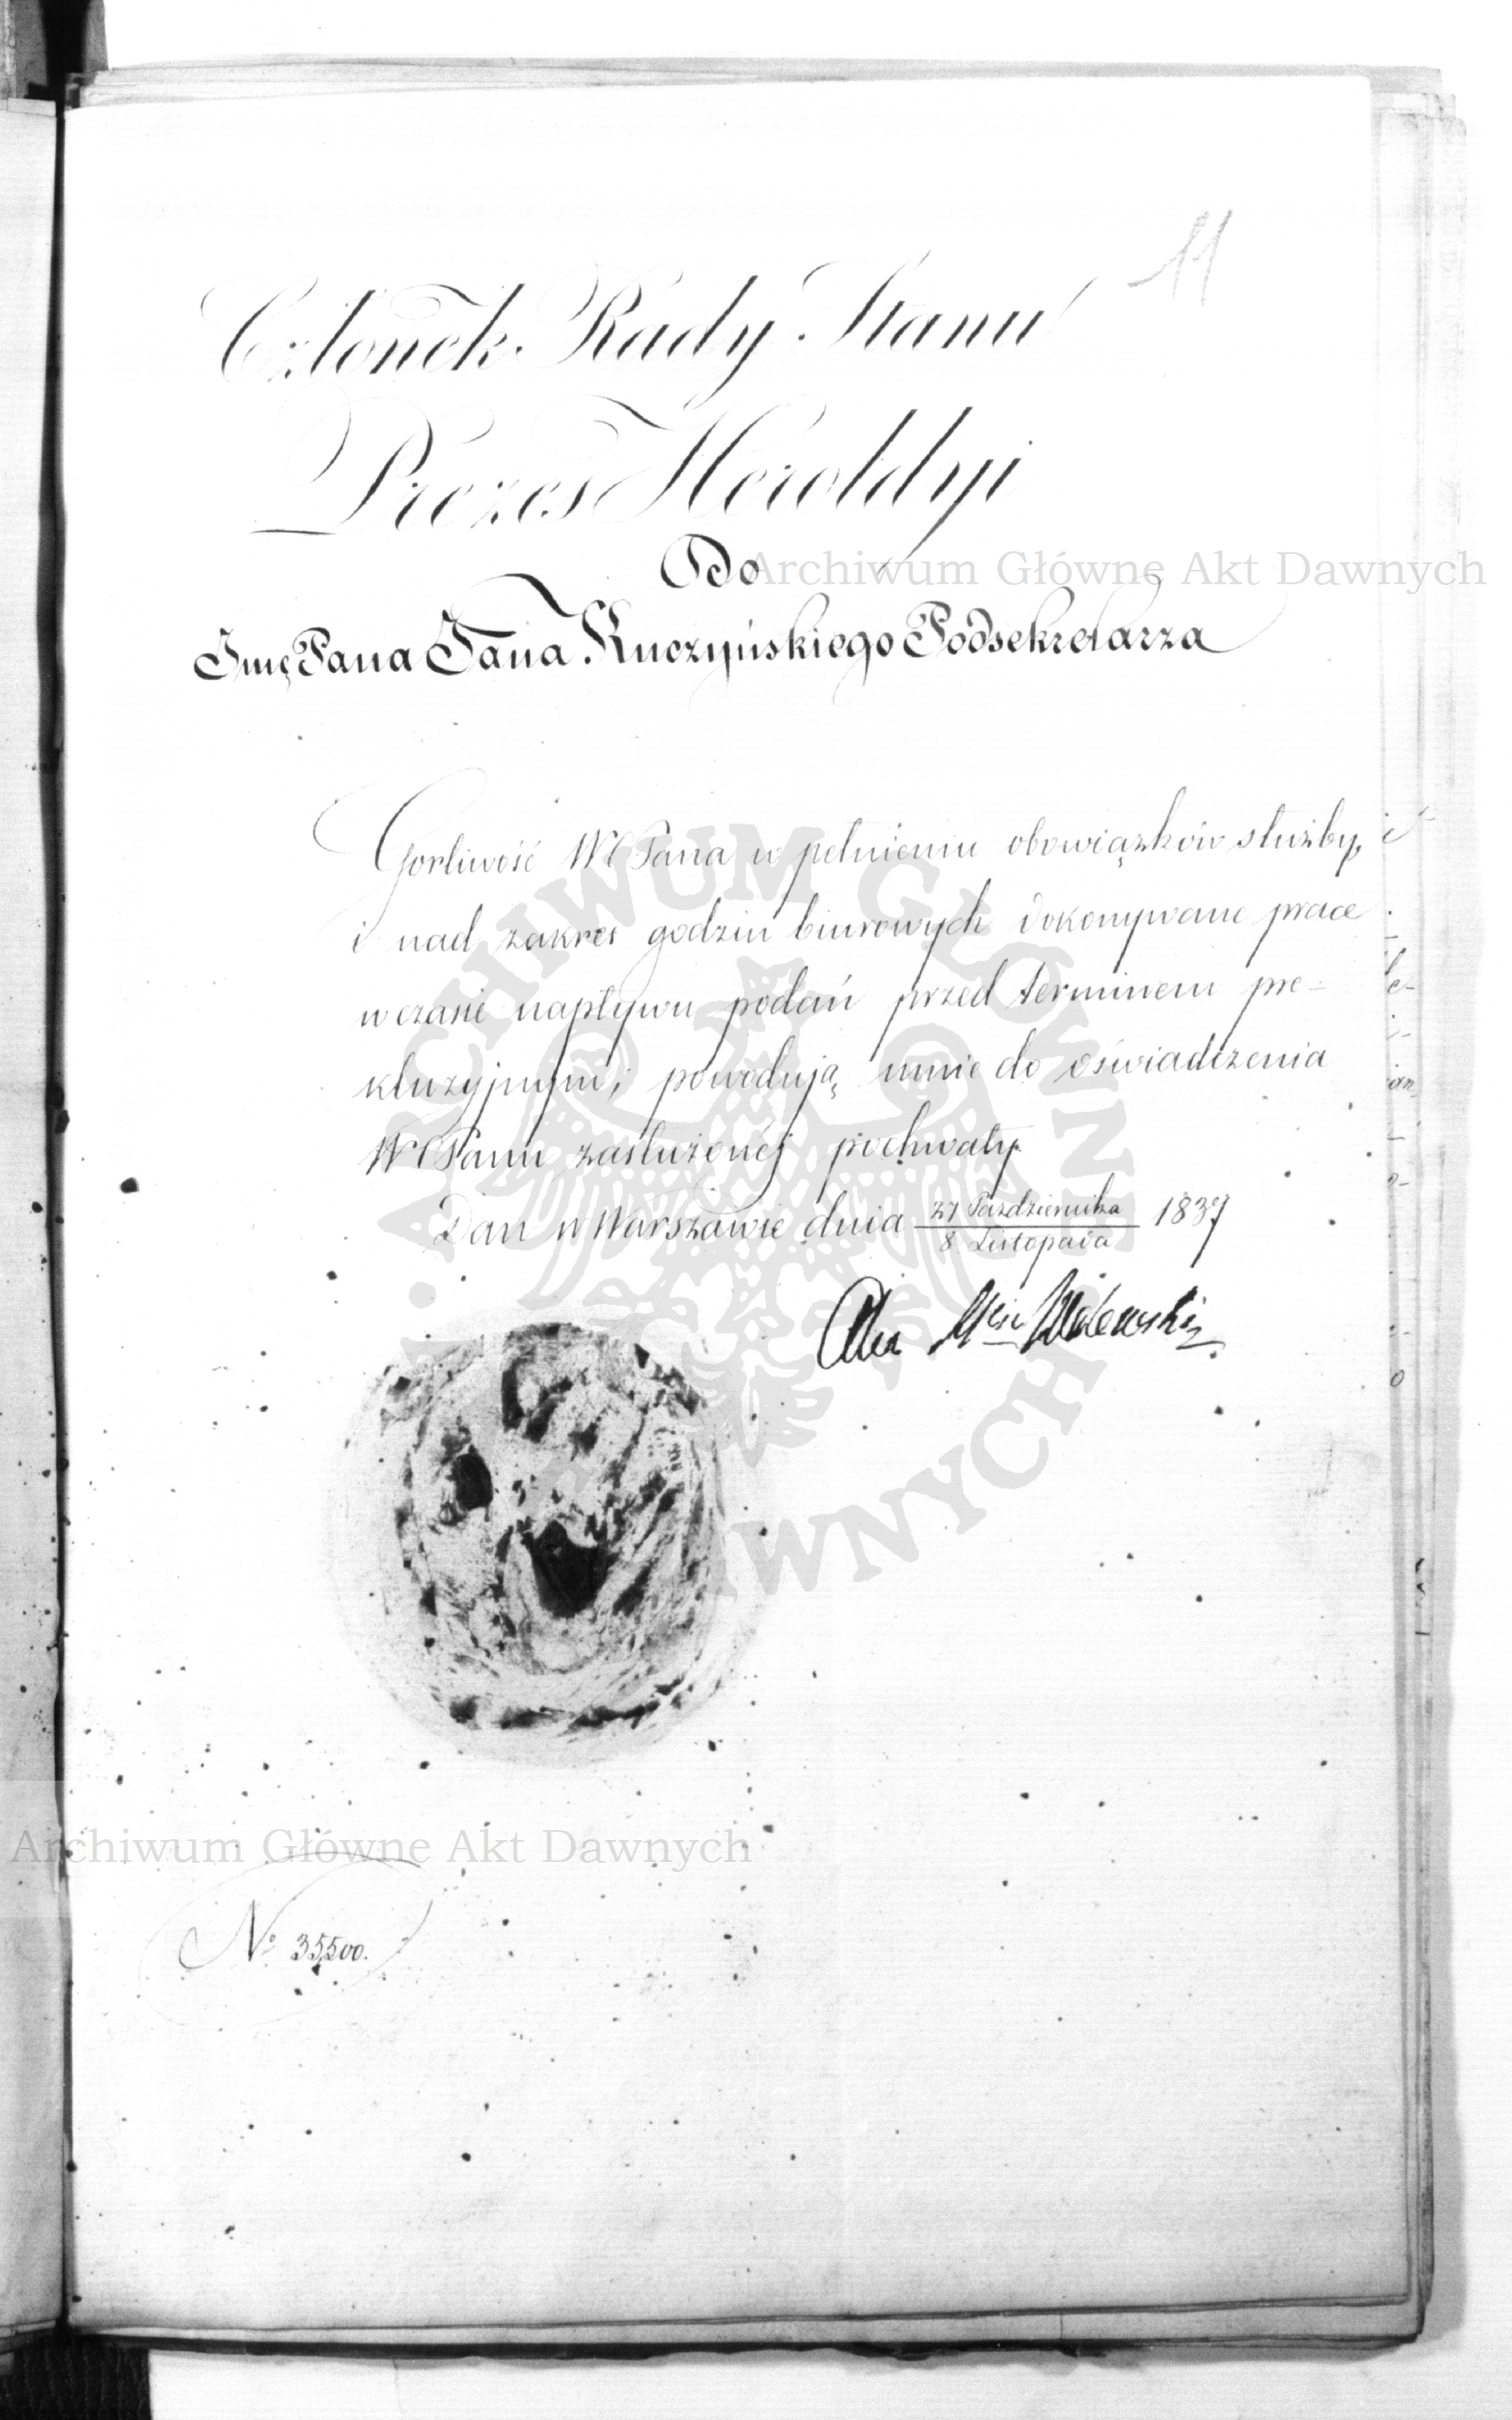 11
Członek Rady Stanu
Prezes Heroldyi
Do
Jmę Pana Jana Kuczyńskiego Podsekretarza
Archiwum Główne Akt Dawnych
Gorliwość WPana w pełnieniu obowiązków służby,
i nad zakres godzin biurowych dokonywane prace
w czasie napływu podań przed terminem pre-
kluzyjnym, powodują mnie do oświadczenia
WPanu zasłużonéj pochwały.
Dan w Warszawie dnia 27 Października / 8 Listopada 1837
Walewski
ARCHIWUM GŁÓWNE
Archiwum Główne Akt Dawnych
No 35500.